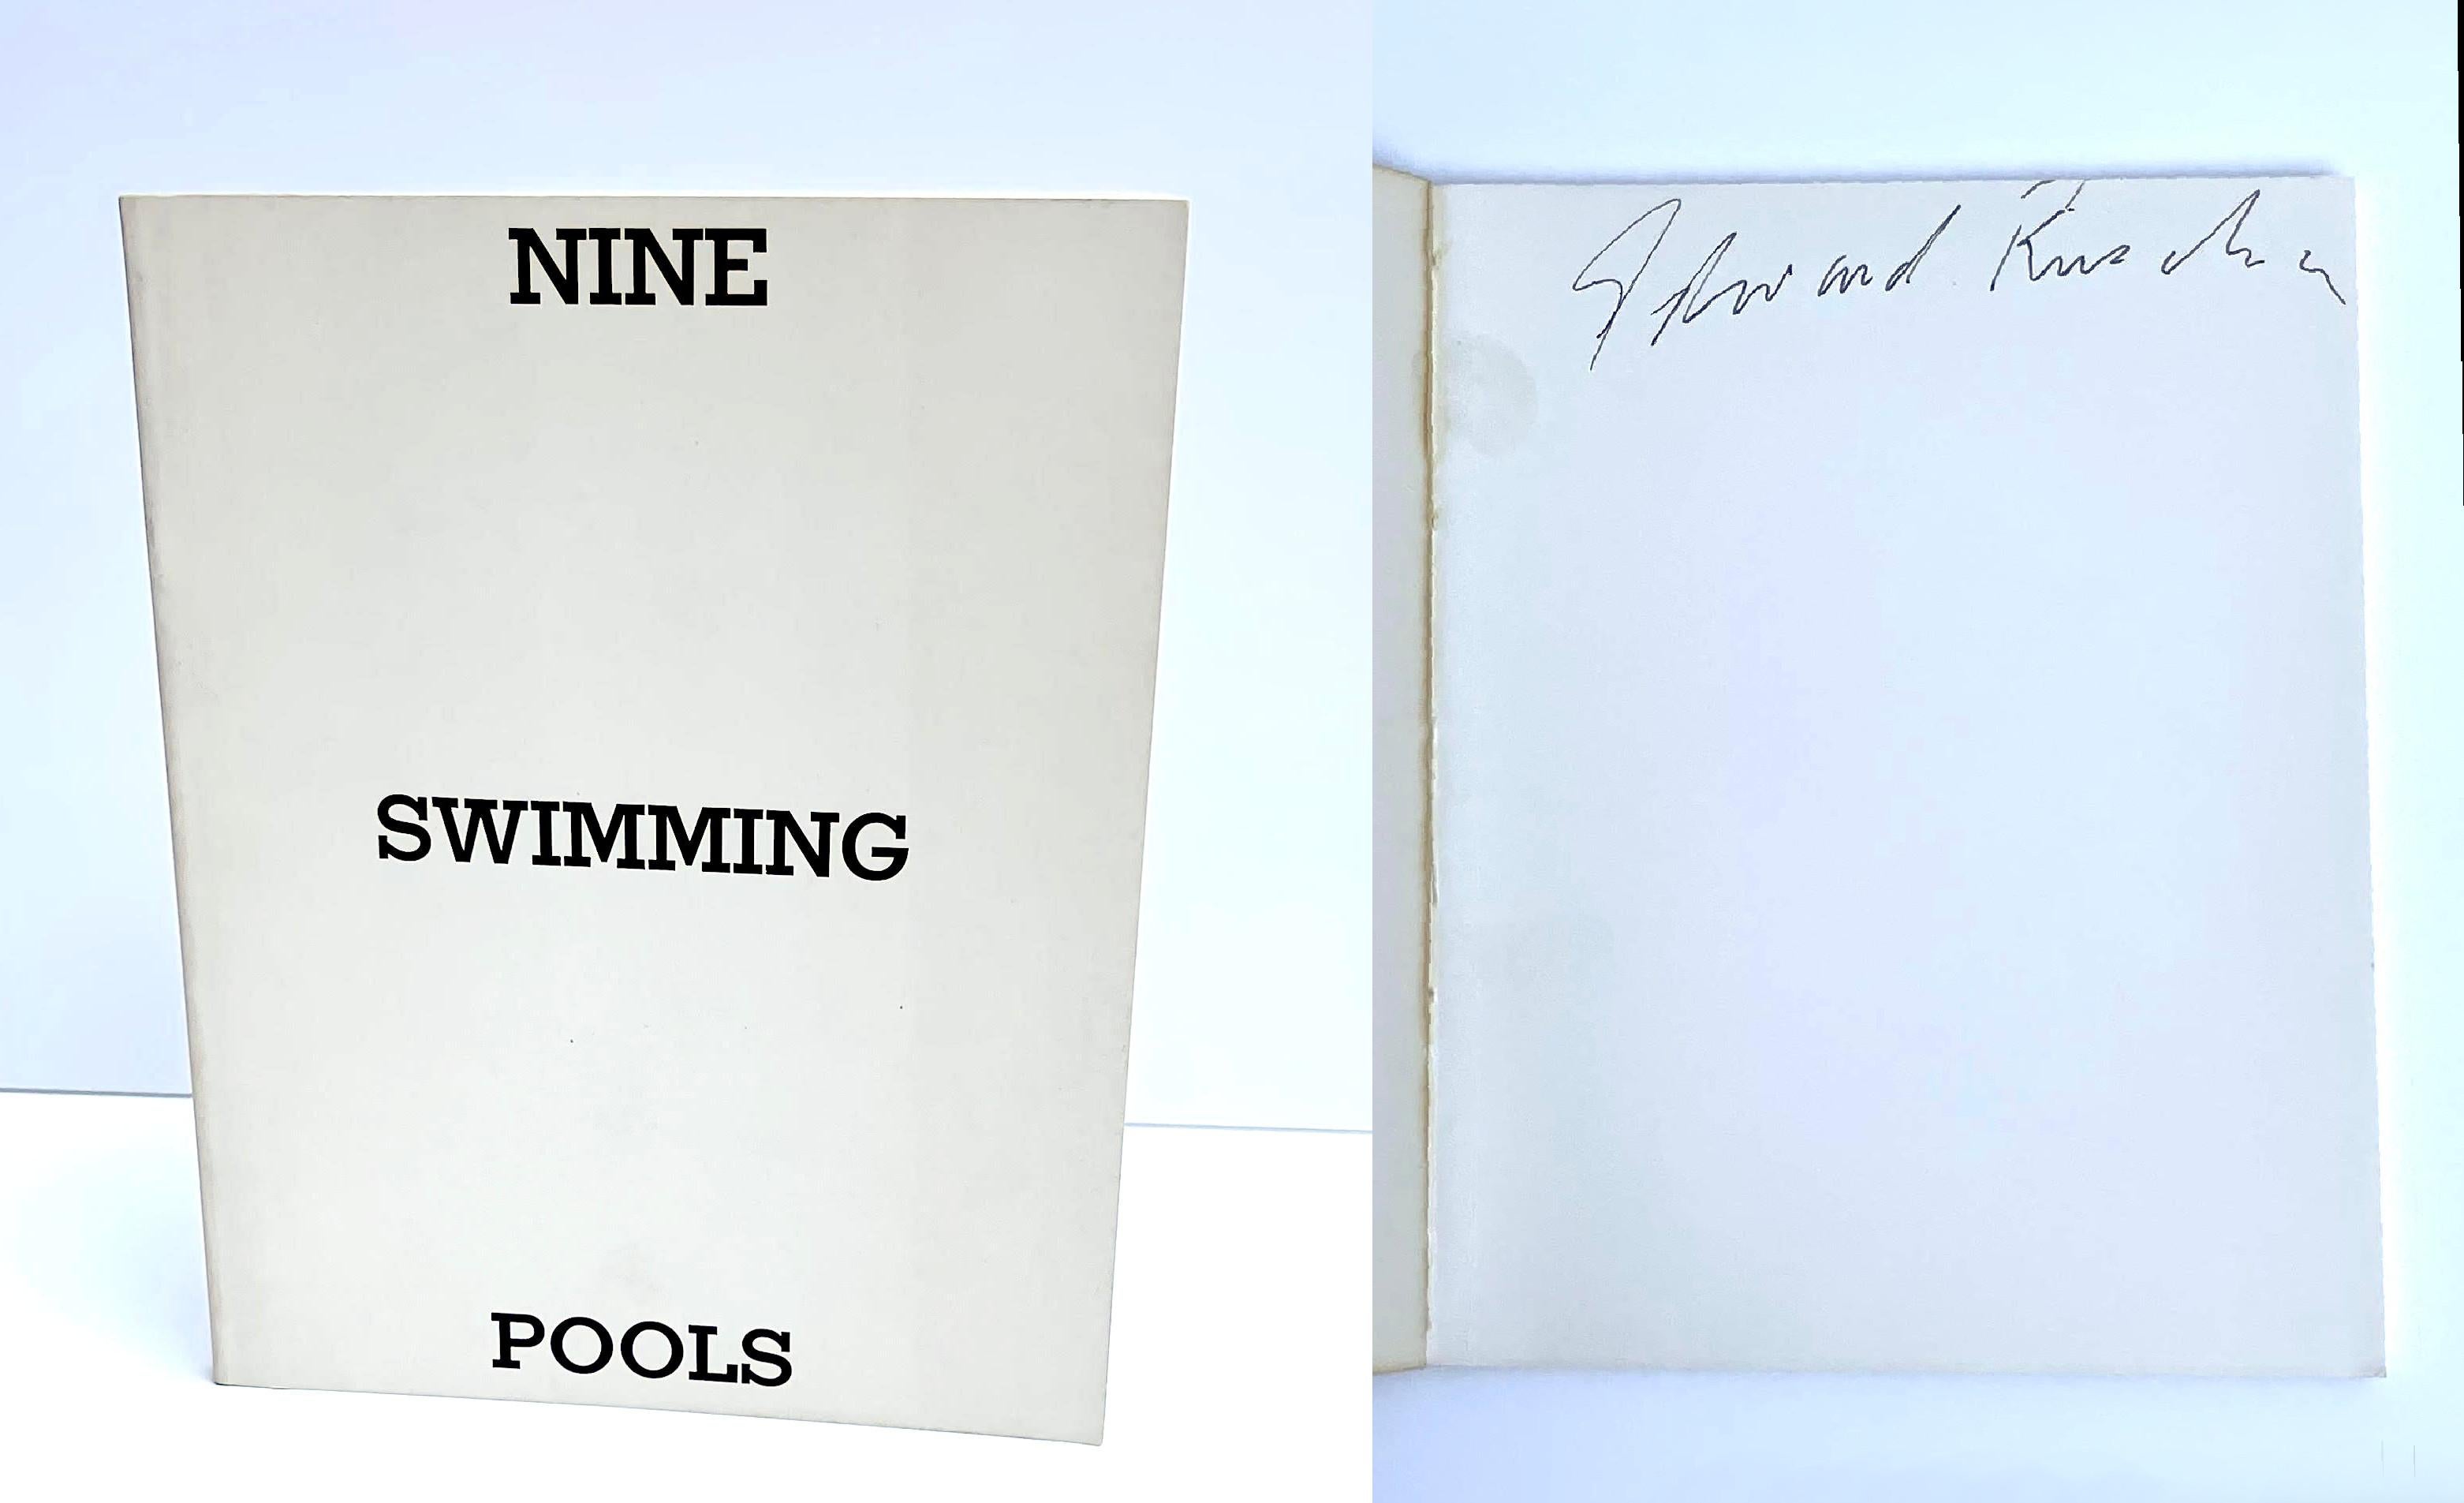 NINE
SWIMMING
POOLS
Edward Ruscha